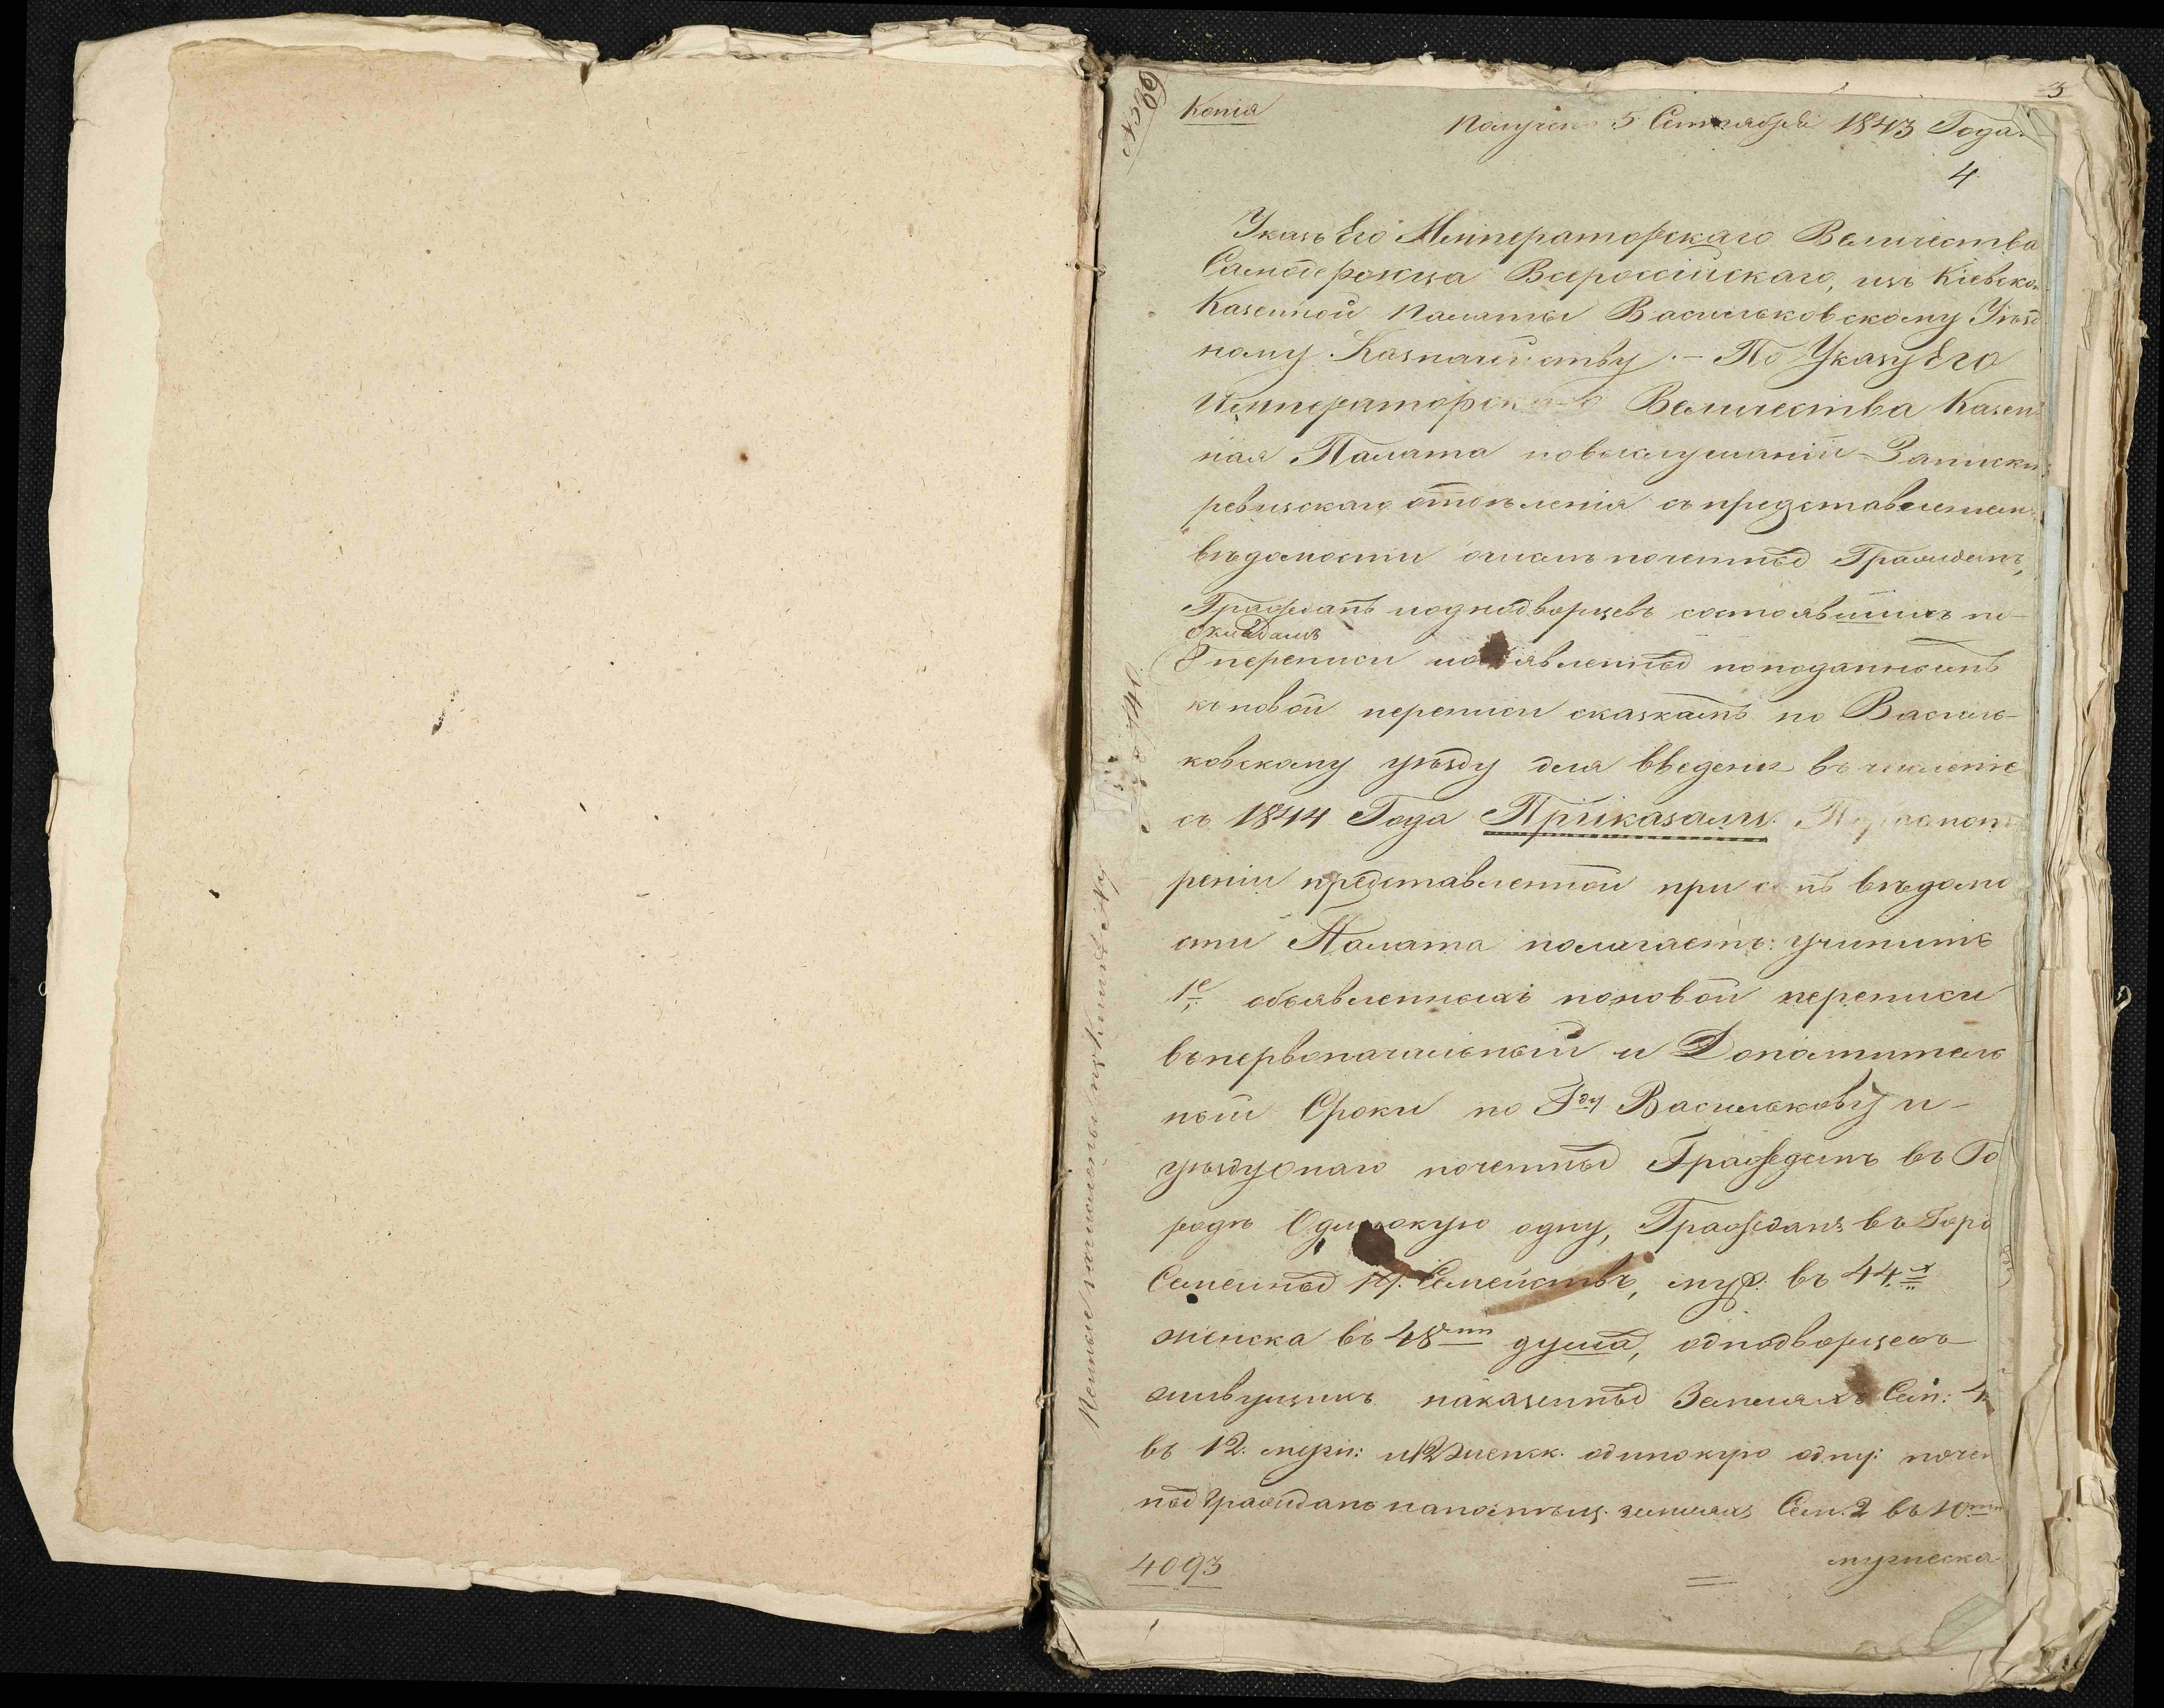 Копія
Получено 5 Сентября 1843 Года.
3
4
Указъ Его Императорскаго Величества
Самодержца Всероссійскаго, изъ Кіевской
Казенной Палаты Васильковскому Уѣзд
ному Казначейству. – По Указу Его
Императорскаго Величества Казен
ная Палата повыслушаніи Записки
ревизскаго отдѣленія съ представленіемъ
вѣдомости очислѣ почетныхъ Гражданъ,
Гражданъ иоднодворцевъ состоявшихъ по
окладамъ
8 переписи иобъявленныхъ поподаннымъ
кновой переписи сказкамъ по Василь-
ковскому уѣзду для введенія въ численіе
съ 1844 Года Приказали: Поразсмот
реніи представленной при семъ вѣдомо
сти Палата полагаетъ: учинить
1е, объявленныхъ поновой переписи
въпервоначальный и Дополнитель
ный Сроки по Гду Василькову и
уѣзду онаго почетныхъ Гражданъ въ Го
родѣ Одинокую одну, Гражданъ въ Горо
Семейныхъ 14. Семействъ, муж: въ 44х
женска въ 48ми душахъ, однодворцевъ
живущихъ наказенныхъ Земляхъ Сем: 4
въ 12. мужи: и12 женск. одинокую одну: почет
ныхъ Гражданъ напомѣщ. земляхъ Сем. 2 въ 10ти
мужеска
4093